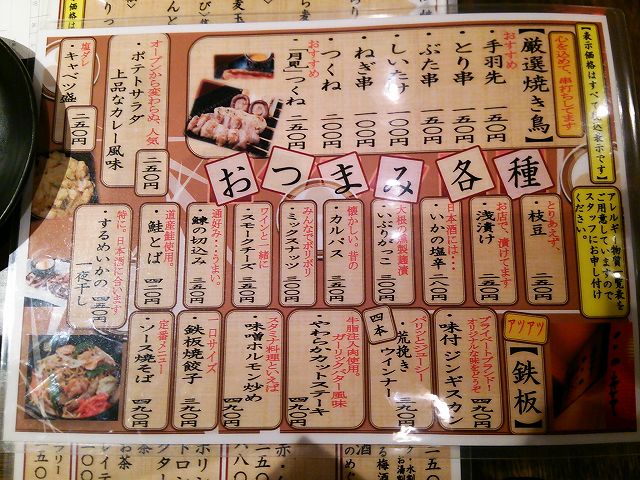 【表示価格はすべて税込表示です】
アレルギー物質一覧表を
ご用意していますので
スタッフにお申し付け
ください。
【厳選焼き鳥】
心を込めて、串打ちしてます
おすすめ
・手羽先 一五〇円
・とり串 一五〇円
・ぶた串 一五〇円
・しいたけ 一〇〇円
・ねぎ串 一〇〇円
・つくね 一〇〇円
おすすめ
・「月見」つくね 二五〇円
オープンから変わらぬ、人気
・ポテトサラダ
上品なカレー風味
二五〇円
塩ダレ
・キャベツ盛 二五〇円
おつまみ各種
とりあえず、
・枝豆 二五〇円
お店で、漬けてます
・浅漬け 二五〇円
日本酒には…
・いかの塩辛 一八〇円
大根の燻製麹漬
・いぶりがっこ 三〇〇円
懐かしい。昔の
・カルパス 二五〇円
みんなでポリポリ
・ミックスナッツ 三〇〇円
ワインと一緒に
・スモークチーズ 二五〇円
通好み…うまい。
・鰊の切込み 二五〇円
道産鮭使用。
・鮭とば 四〇〇円
特に、日本酒に合います
・するめいかの
一夜干し 四五〇円
アツアツ
【鉄板】
プライベートブランド
オリジナルな味をどうぞ
・味付ジンギスカン 四九〇円
パリッとジューシー
・荒挽き
ウィンナー 三九〇円
四本
牛脂注入肉使用。
ガーリックバター風味
・やわらかカットステーキ 四九〇円
スタミナ料理といえば
・味噌ホルモン炒め 四九〇円
一口サイズ
・鉄板焼餃子 三九〇円
定番メニュー
・ソース焼そば 四九〇円